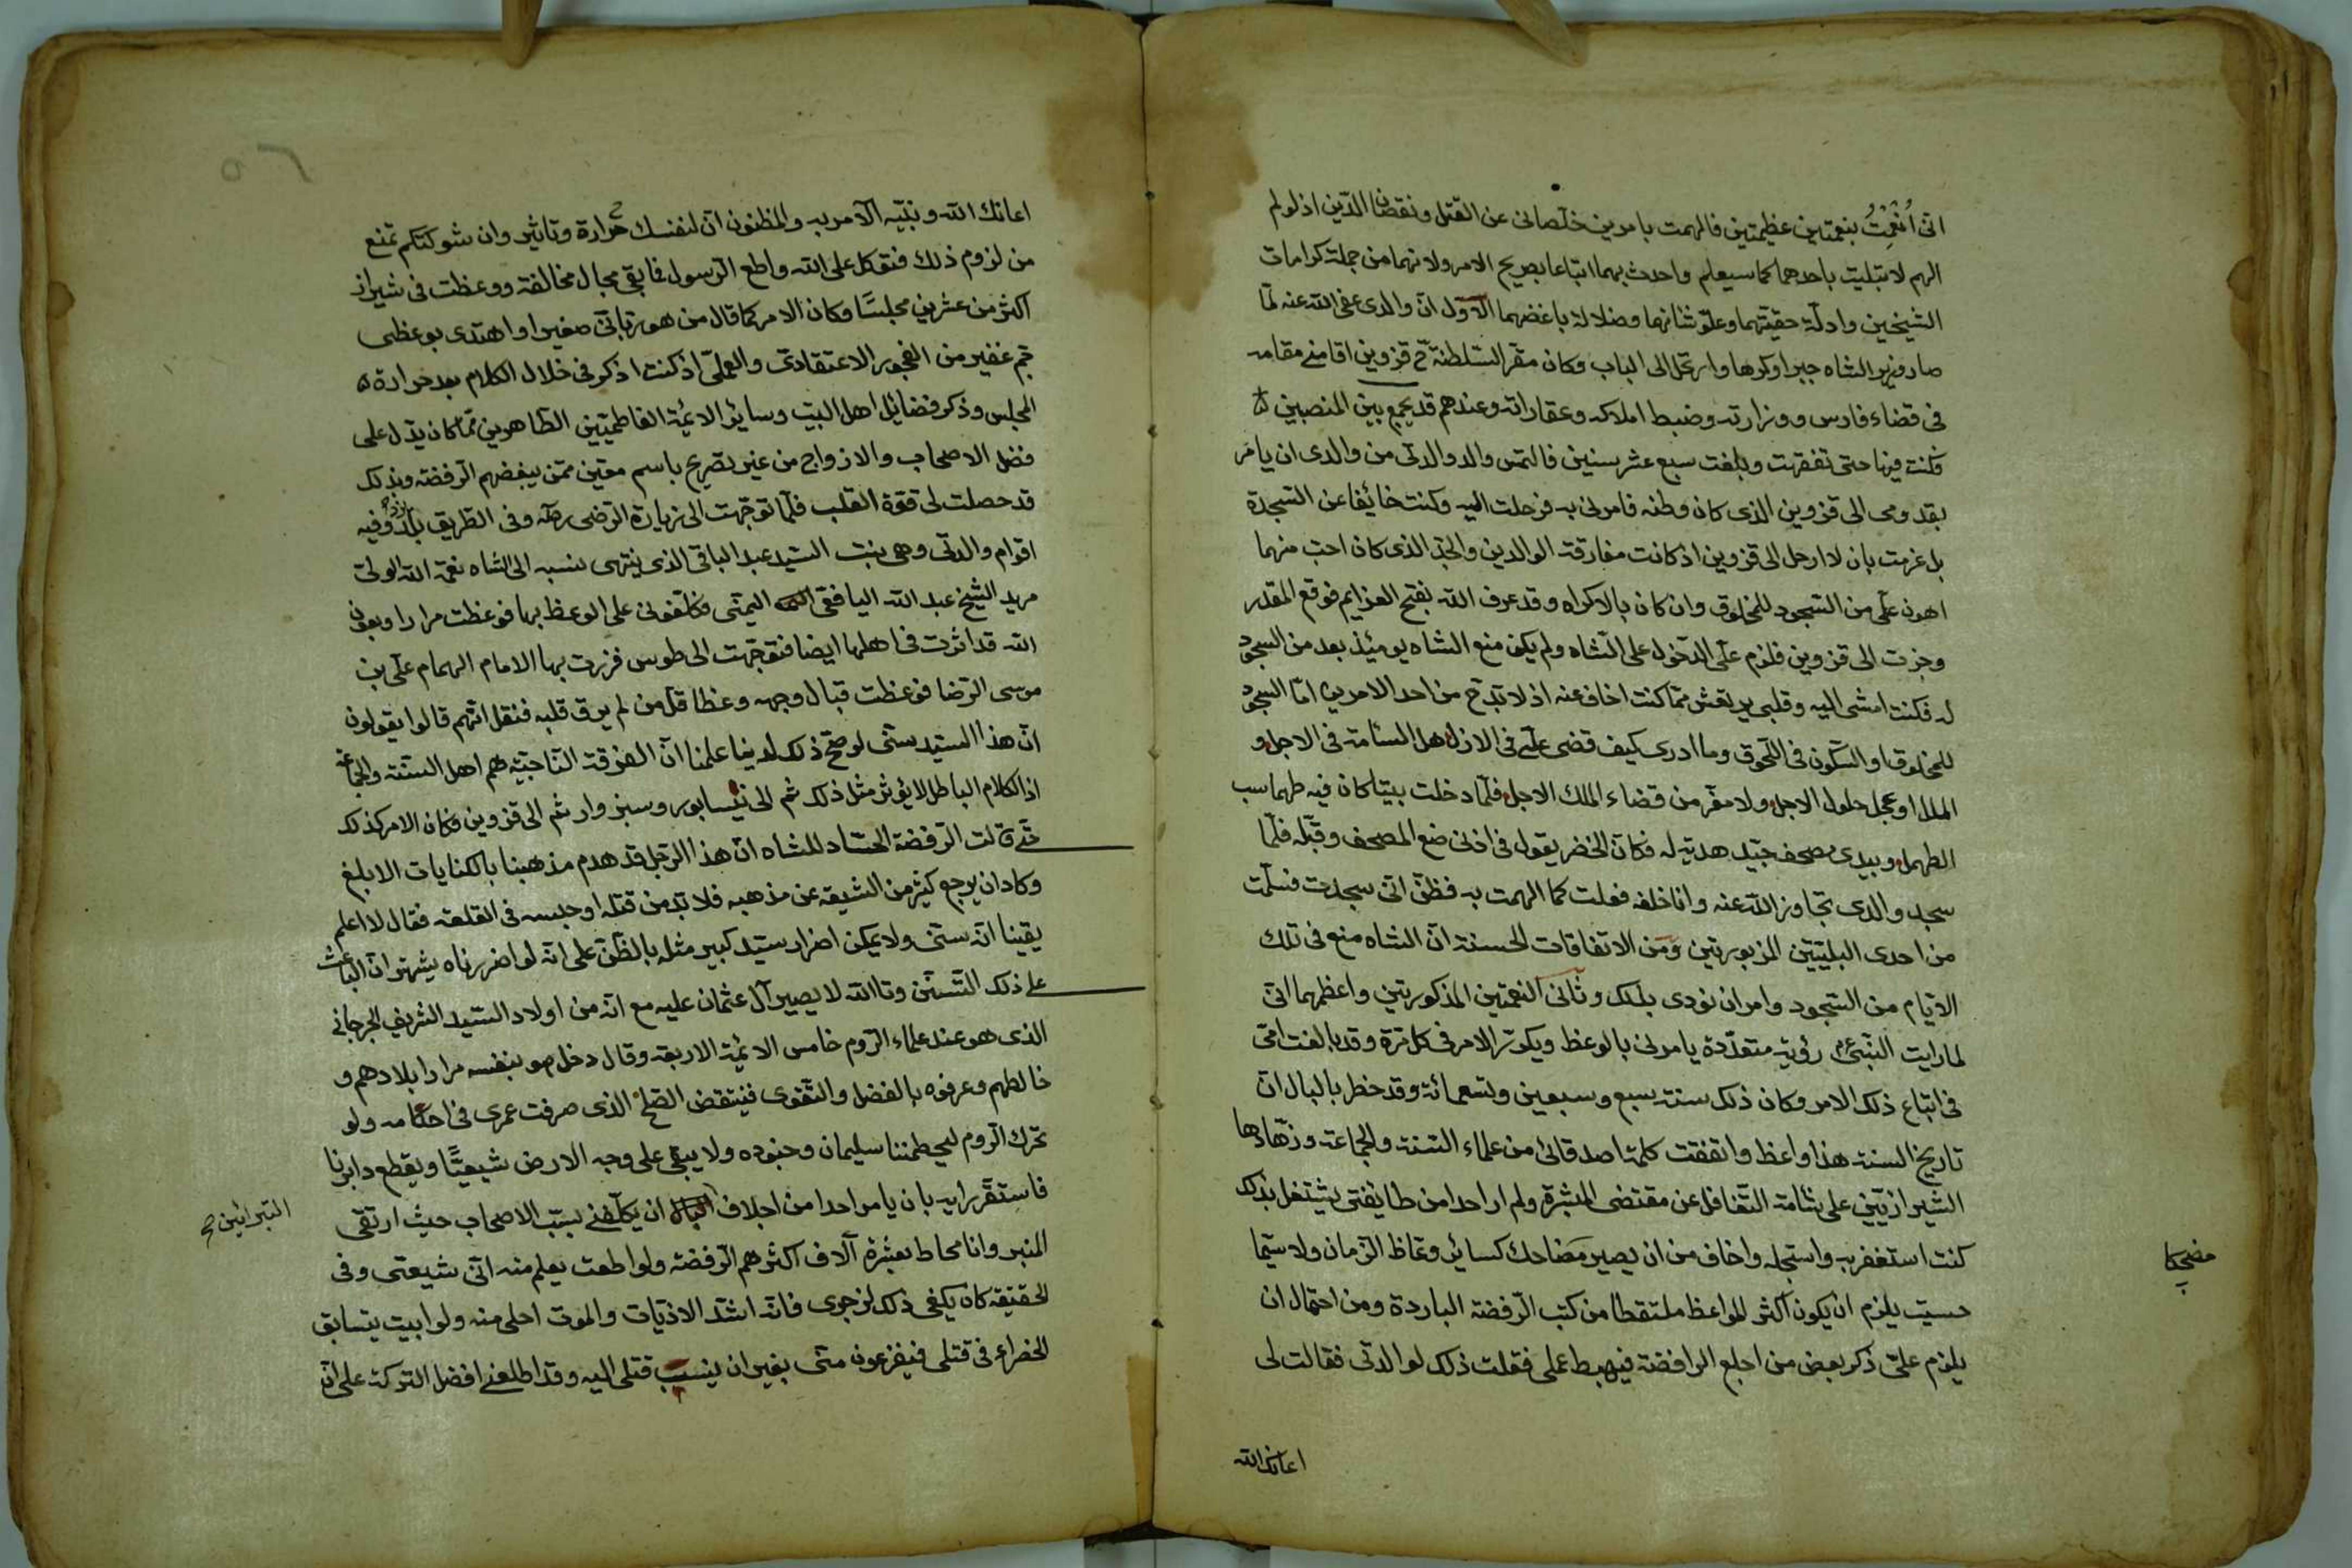 انى أُنْعِمْتُ بنعمتين عظيمتين فالهمت بامرين خلّصانى عن القتل ونقصان الدّين اذ لو لم
الهم لابتليت باحدهما كما سيعلم واحدث بهما اتباعا بصريح الامر ولانهما من جملة كرامات
الشيخين وادلّة حقيتهما وعلوّ شانهما وضلالة باغضهما الاول انّ والدى عفى الله عنه لمّا
صار وزير الشاه جبرا وكرها وارتحل الى الباب وكان مقر السّلطنة ح قزوين اقامنے مقامه
فى قضاء فارس ووزارته وضبط املاكه وعقاراته وعندهم قد يجمع بين المنصبين
فكنت فيها حتى تفقهت وبلغت سبع عشر سنين فالتمس والد والدتى من والدى ان يامر
بقدومى الى قزوين الذى كان وطنه فامرنى به فرحلت اليه وكنت خائفا عن السّجدة
بل عزمت بان لا ارحل الى قزوين اذ كانت مفارقة الوالدين والجدّ الذى كان احبّ منهما
اهون علىّ من السّجود للمخلوق وان كان بالاكراه وقد عرف الله بفتح العزايم فوقع المقدر
وجزت الى قزوين فلزم علىّ الدّخول على الشاه ولم يكن منع الشاه يومئذ بعد من السجود
له فكنت امشى اليه وقلبى يرتعش ممّا كنت اخاف عنه اذ لا بدّ ح من احد الامرين امّا السجود
للمخلوق او السّكون فى اللّحوق وما ادرى كيف قضى علىّ فى الازل هل السّامة فى الاجل و
الملل او عجل حلول الاجل ولا مفرّ من قضاء الملك الاجل فلمّا دخلت بيتا كان فيه طهماسب
الطهماء وبيدى مصحف جيّد هديّه له فكانّ الخضر يقول فى اذنى ضع المصحف وقبّله فلمّا
سجد والدى تجاوز الله عنه وانا خلفه فعلت كما الهمت به فظنّ انى سجدت فسلّمت
من احدى البليّتين المزبورتين ومن الاتفاقات الحسنة انّ الشاه منع فى تلك
الايّام من السّجود وامر ان نودى بذلك وثانى النعمتين المذكورتين واعظمهما انّى
لما رايت النّبى ع م رؤية متعدّدة يامرنى بالوعظ ويكرّر الامر فى كل مرة وقد بالغت امّى
فى اتباع ذلك الامر وكان ذلك سنة سبع وسبعين وتسعمائة وقد خطر بالبال انّ
تاريخ السنة هذا واعظ واتفقت كلمة اصدقائى من علماء السّنة والجماعة وزهّادها
الشيرازيّين على شامة التّغافل عن مقتضى المبشرة ولم ار احدا من طايفتى يشتغل بذلك
كنت استغفر به واستجله واخاف من ان يصير مضاحك كسائر وعّاظ الزّمان ولا سيّما
حسيت يلزم ان يكون اكثر المواعظ ملتقطا من كتب الرّفضة الباردة ومن احتمال ان
يلزم علىّ ذكر بعض من احلع الرافضة فيهبط عملى فقلت ذلك لوالدتى فقالت لى
مضحكا
اعانك الله
اعانك الله ونبيّه الآمر به والمظنون انّ لنفسك حرارة وتاثير وان شوكتكم تمنع
من لزوم ذلك فتوكل على الله واطع الرّسول فما بقى مجال مخالفة ووعظت فى شيراز
اكثر من عشرين مجلسًا وكان الامر كما قال من هو ربّانىّ صغيرا واهتدى بوعظى
جمّ غفير من الفجور الاعتقادىّ والعملىّ اذ كنت اذكر فى خلال الكلام بعد حرارة
المجلس وذكر فضائل اهل البيت وسائر الائمّة الفاطميّين الطّاهرين ممّا كان يدّل على
فضل الاصحاب والازواج من غير تصريح باسم معيّن ممّن يبغضهم الرّفضة وبذلك
قد حصلت لى قوّة القلب فلمّا توجّهت الى زيارة الرّضى رضه وفى الطّريق بلد يزد وفيه
اقوام والدتى وهى بنت السّيد عبد الباقى الذى ينتهى نسبه الى الشاه نعمة الله الولىّ
مريد الشيخ عبد الله اليافعى اليمنّى فكلّفونى على الوعظ بها فوعظت مرارا وبعون
الله قد اثرت فى اهلها ايضا فتوجّهت الى طوس فزرت بها الامام الهمام علىّ بن
موسى الرّضا فوعظت قبال وجهه وعظا قلّ من لم يرق قلبه فنقل انّهم قالوا يقولون
انّ هذا السيّد سنّى لو صحّ ذلك لدينا علمنا انّ الفرقة النّاجيّه هم اهل السّنة والجماعة
اذ الكلام الباطل لا يؤثر مثل ذلك ثم الى نيسابور وسبزوار ثم الى قزوين وكان الامر كذلك
حتّے قالت الرّفضة الحسّاد للشاه انّ هذا الرّجل قد هدم مذهبنا بالكنايات الابلغ
وكاد ان يرجع كثير من الشيعة عن مذهبه فلا بدّ من قتله او حبسه فى القلعة فقال لا اعلم
يقينا انّه سنّى ولا يمكن اضرار سيّد كبير مثله بالظّن على انّه لو اضررناه يشهر انّ الباعث
على ذلك التّسنّن وتالله لا يصير آل عثمان عليه مع انّه من اولاد السّيد الشريف الجرجانى
الذى هو عند علماء الرّوم خامس الائمّة الاربعة وقال دخل هو بنفسه مرارا بلادهم و
خالطهم وعرفوه بالفضل والتّقوى فينتقض الصّلح الذى صرفت عمرى فى احكامه ولو
تحرك الرّوم ليحطمننا سليمان وجنوده ولا يبقى على وجه الارض شيعيًّا ويقطع دابرنا
فاستقرّ رايه بان يامر احدا من اجلاف ان يكلّفنے بسبّ الاصحاب حيث ارتقى
التبرائين صح
المنبر وانا محاط بعشرة آلاف اكثرهم الرّفضة ولو اطعت يعلم منه انّى شيعى وفى
الحقيقة كان يكفى ذلك لزجرى فانّه اشدّ الاذيّات والموت احلى منه ولو ابيت يتسابق
الخضراء فى قتلى فيفزعون منّى بغير ان ينسب قتلى اليه وقد اطلعنے افضل التركة على انّ